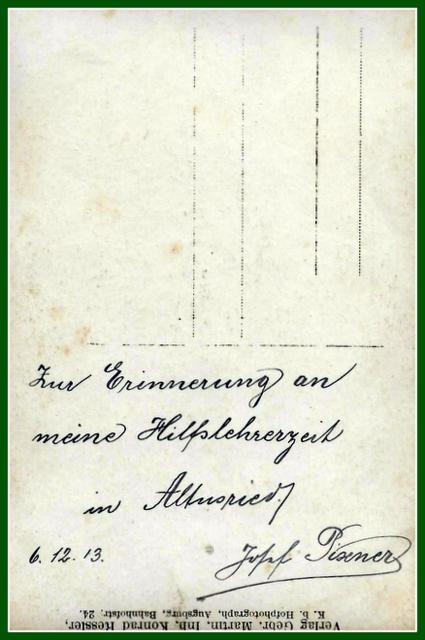 Zur Erinnerung an
meine Hilfslehrerzeit
in Altusried
6.12.13. Josef Pixner
Verlag Gebr. Martin, Inh. Konrad Ressler,
K. b. Hofphotograph, Augsburg, Bahnhofstr. 24.